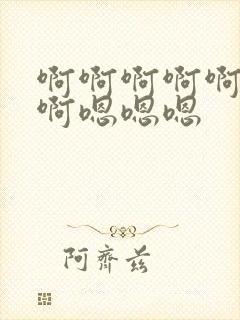 啊啊啊啊啊
啊嗯嗯嗯
阿齐兹